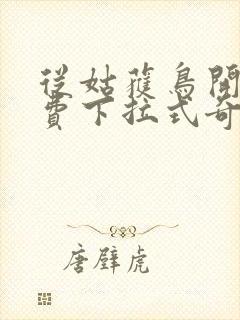 從姑獲鳥開
費下拉式奇
唐壁虎